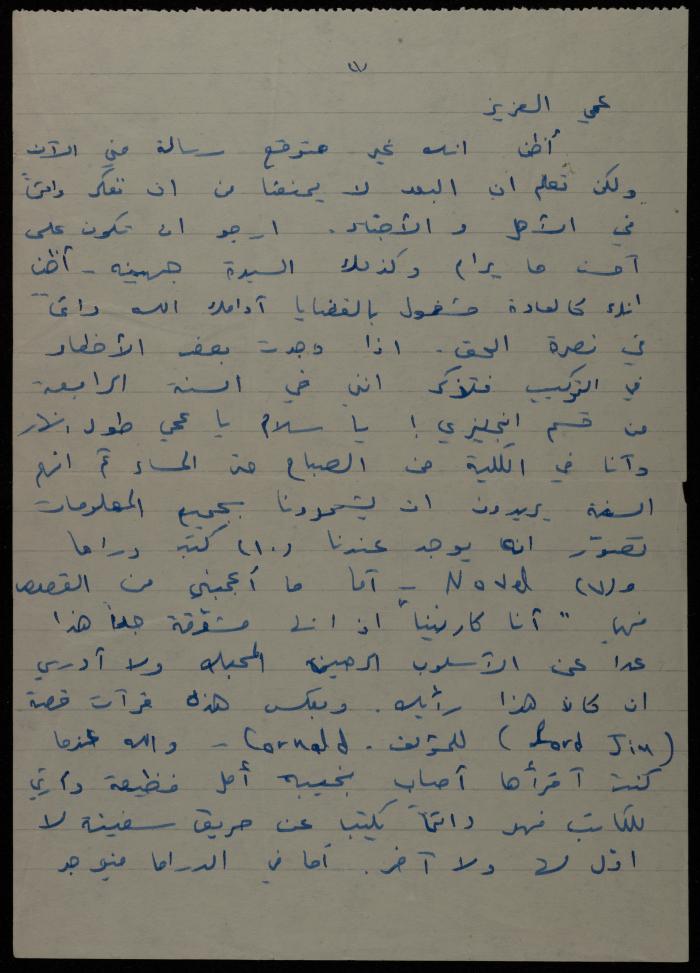 (١)
عمي العزيز
أظن انك غير متوقع رسالة مني الآن
ولكن تعلم ان البعد لا يمنعنا من ان نفكر دائماً
في الأهل و الأحباء. ارجو ان تكون على
أحسن ما يرام وكذلك السيدة جهينه - أظن
انك كالعادة مشغول بالقضايا أدامك الله دائماً
في نصرة الحق. اذا وجدت بعض الأخطاء
في التركيب فتذكر انني في السنة الرابعة
من قسم انجليزي! يا سلام يا عمي طول النهار
وأنا في الكلية من الصباح حتى المساء ثم انهم
السنة يريدون ان يشحدونا بجميع المعلومات
تصوّر انه يوجد عندنا (١٠) كتب دراما
و(٧) Novel - أما ما أعجبني من القصص
فهي "أنا كارنينا" اذ انها مشوّقة جداً هذا
عدا عن الأسلوب الرصين المحبك ولا أدري
ان كان هذا رأيك. وبعكس هذه قرأت قصة
(Lord Jim) للمؤلف Cornald. - والله عندما
كنت أقرأها أصاب بخيبة أمل فظيعة
للكاتب فهو دائماً يكتب عن حريق سفينة لا
اوّل لها ولا آخر. أما في الدراما فيوجد